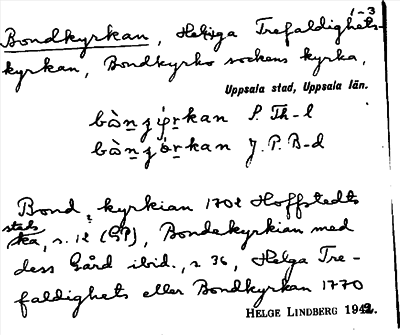 1-3
Bondkyrkan, Helga Trefaldighets-
kyrkan, Bondkyrko sockens kyrka,
Uppsala stad, Uppsala län.
S. Th-l
J. P. B-d
Bond, kyrkian 1702 Hoffstedts
s. 12 (GP), Bondekyrkian med
dess Gård ibid., s. 36, Helga Tre-
faldighets eller Bondkyrkan 1770
HELGE LINDBERG 1942.